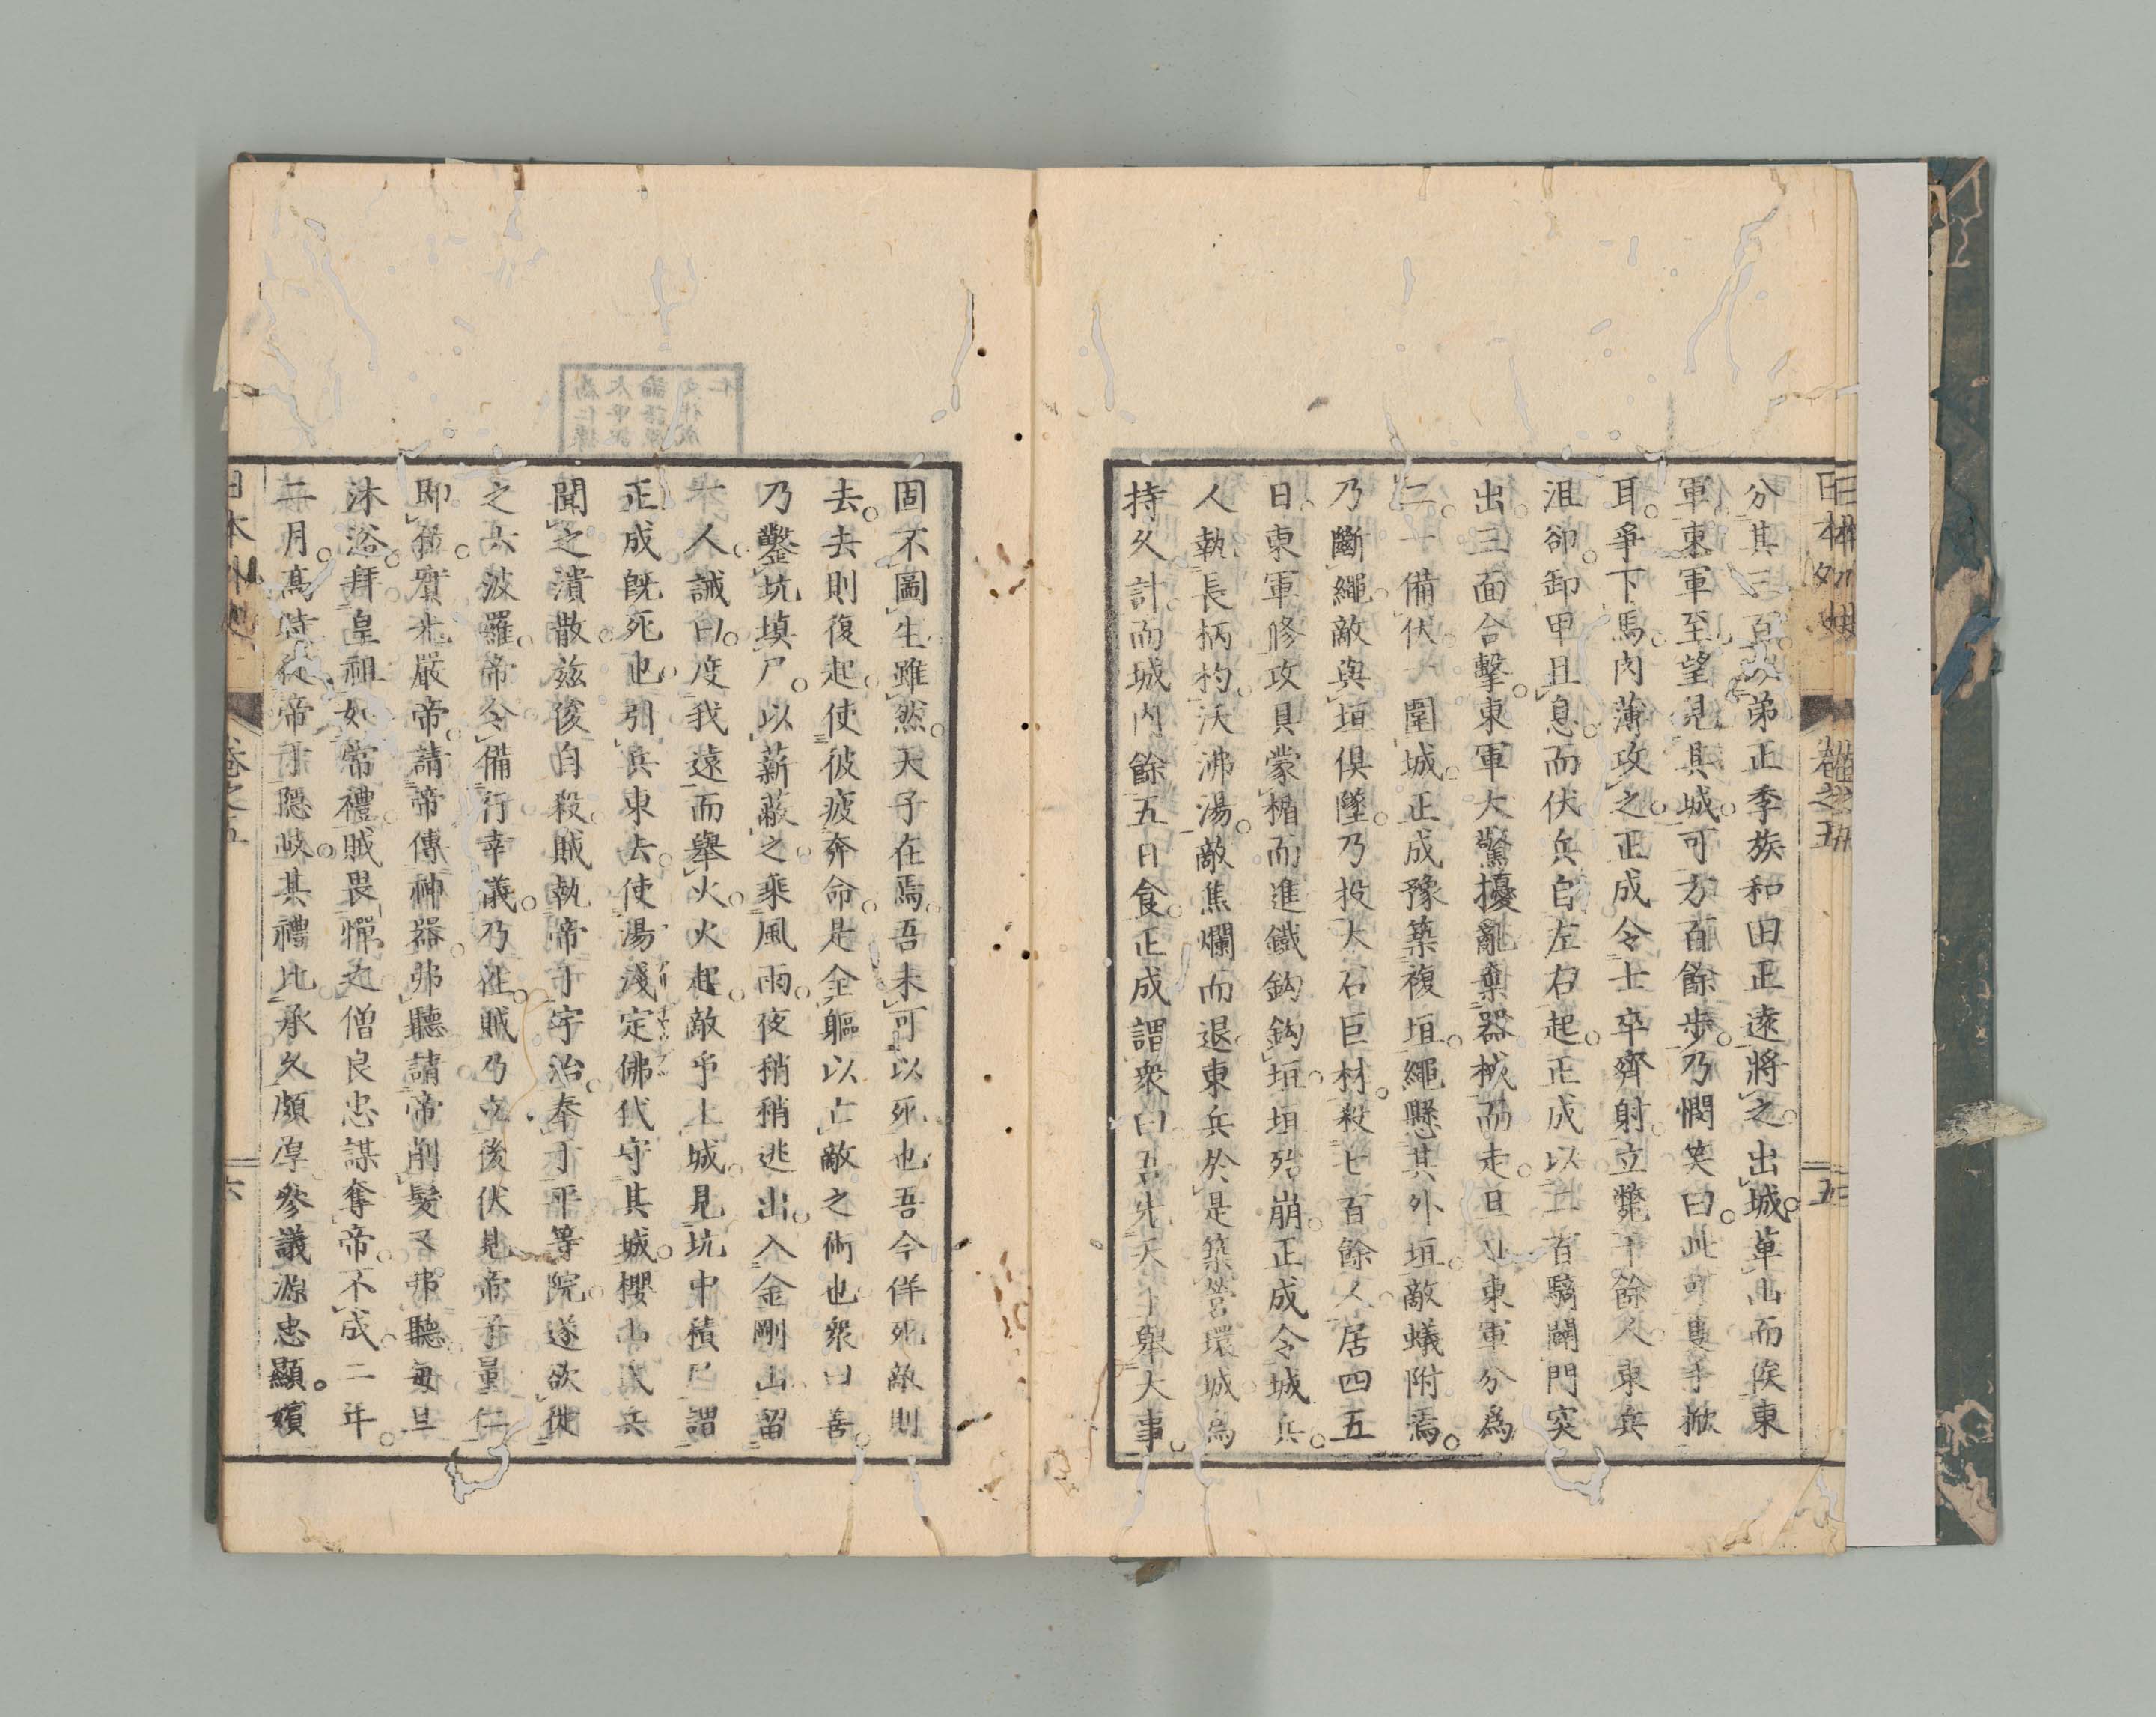 日本外史 卷之五 五
分其三百以弟正季族和田正遠將之出城草山而俟東
軍東軍至望見其城可方百餘歩乃憫笑曰此可隻手掀
耳爭下馬肉薄攻之正成令士卒齊射立斃千餘人東兵
沮卻卸甲且息而伏兵自左右起正成以二百騎闢門突
出三面合擊東軍大驚擾亂棄器械而走旦日東軍分爲
二一備伏一圍城正成豫築複垣繩懸其外垣敵蟻附焉
乃斷繩敵與垣倶墜乃投大石巨材殺七百餘人居四五
日東軍修攻具蒙楯而進鐵鈎鈎垣垣殆崩正成令城兵
人執長柄杓沃沸湯敵焦爛而退東兵於是築營環城爲
持久計而城内餘五日食正成謂衆曰吾先天下舉大事
固不圖生雖然天子在焉吾未可以死也吾今佯死敵則
去去則復起使彼疲奔命是全軀以亡敵之術也衆曰善
乃鑿坑填尸以薪蔽之乘風雨夜稍稍逃出入金剛山留
一人誡曰度我遠而舉火火起敵爭上城見坑中積尸謂
正成既死也引兵東去使湯淺定佛代守其城櫻山氏兵
聞之潰散茲俊自殺賊執帝于宇治奉于平等院遂欲徙
之六波羅帝令備行幸儀乃往賊乃立後伏見帝子量仁
即位實光嚴帝請帝傳神器弗聽請帝削髮又弗聽毎旦
沐浴拜皇祖如常禮賊畏憚之僧良忠謀奪帝不成二年
二月高時徙帝于隱岐其禮比承久頗厚參議源忠顯嬪
日本外史 卷之五 六